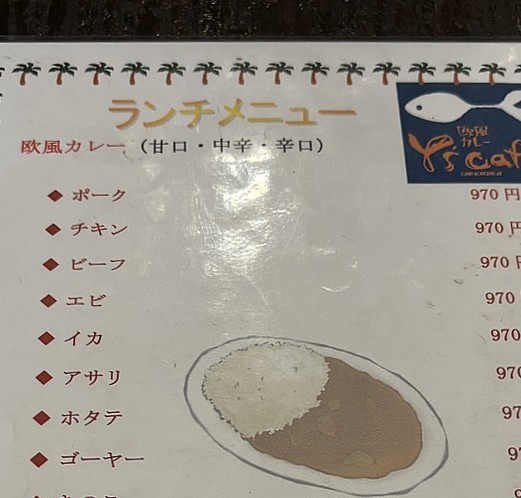 ランチメニュー
欧風カレー（甘口・中辛・辛口）
欧風
カレー
Y's caf
◆ ポーク 970円
◆ チキン 970円
◆ ビーフ 970
◆ エビ 970
◆ イカ 970
◆ アサリ 970
◆ ホタテ 97
◆ ゴーヤー 97